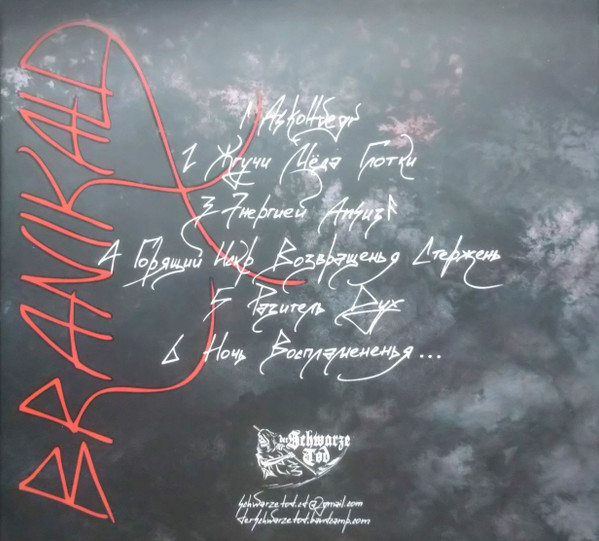 BRANIKALD
1
2 Жгучи Мёда Глотки
3 Энергией
4 Горящий Искр Возвращенья Стержень
5 Разитель Дух
6 Ночь Воспламененья...
der Schwarze
Tod
schwarzetod.cd@gmail.com
derschwarzetod.bandcamp.com